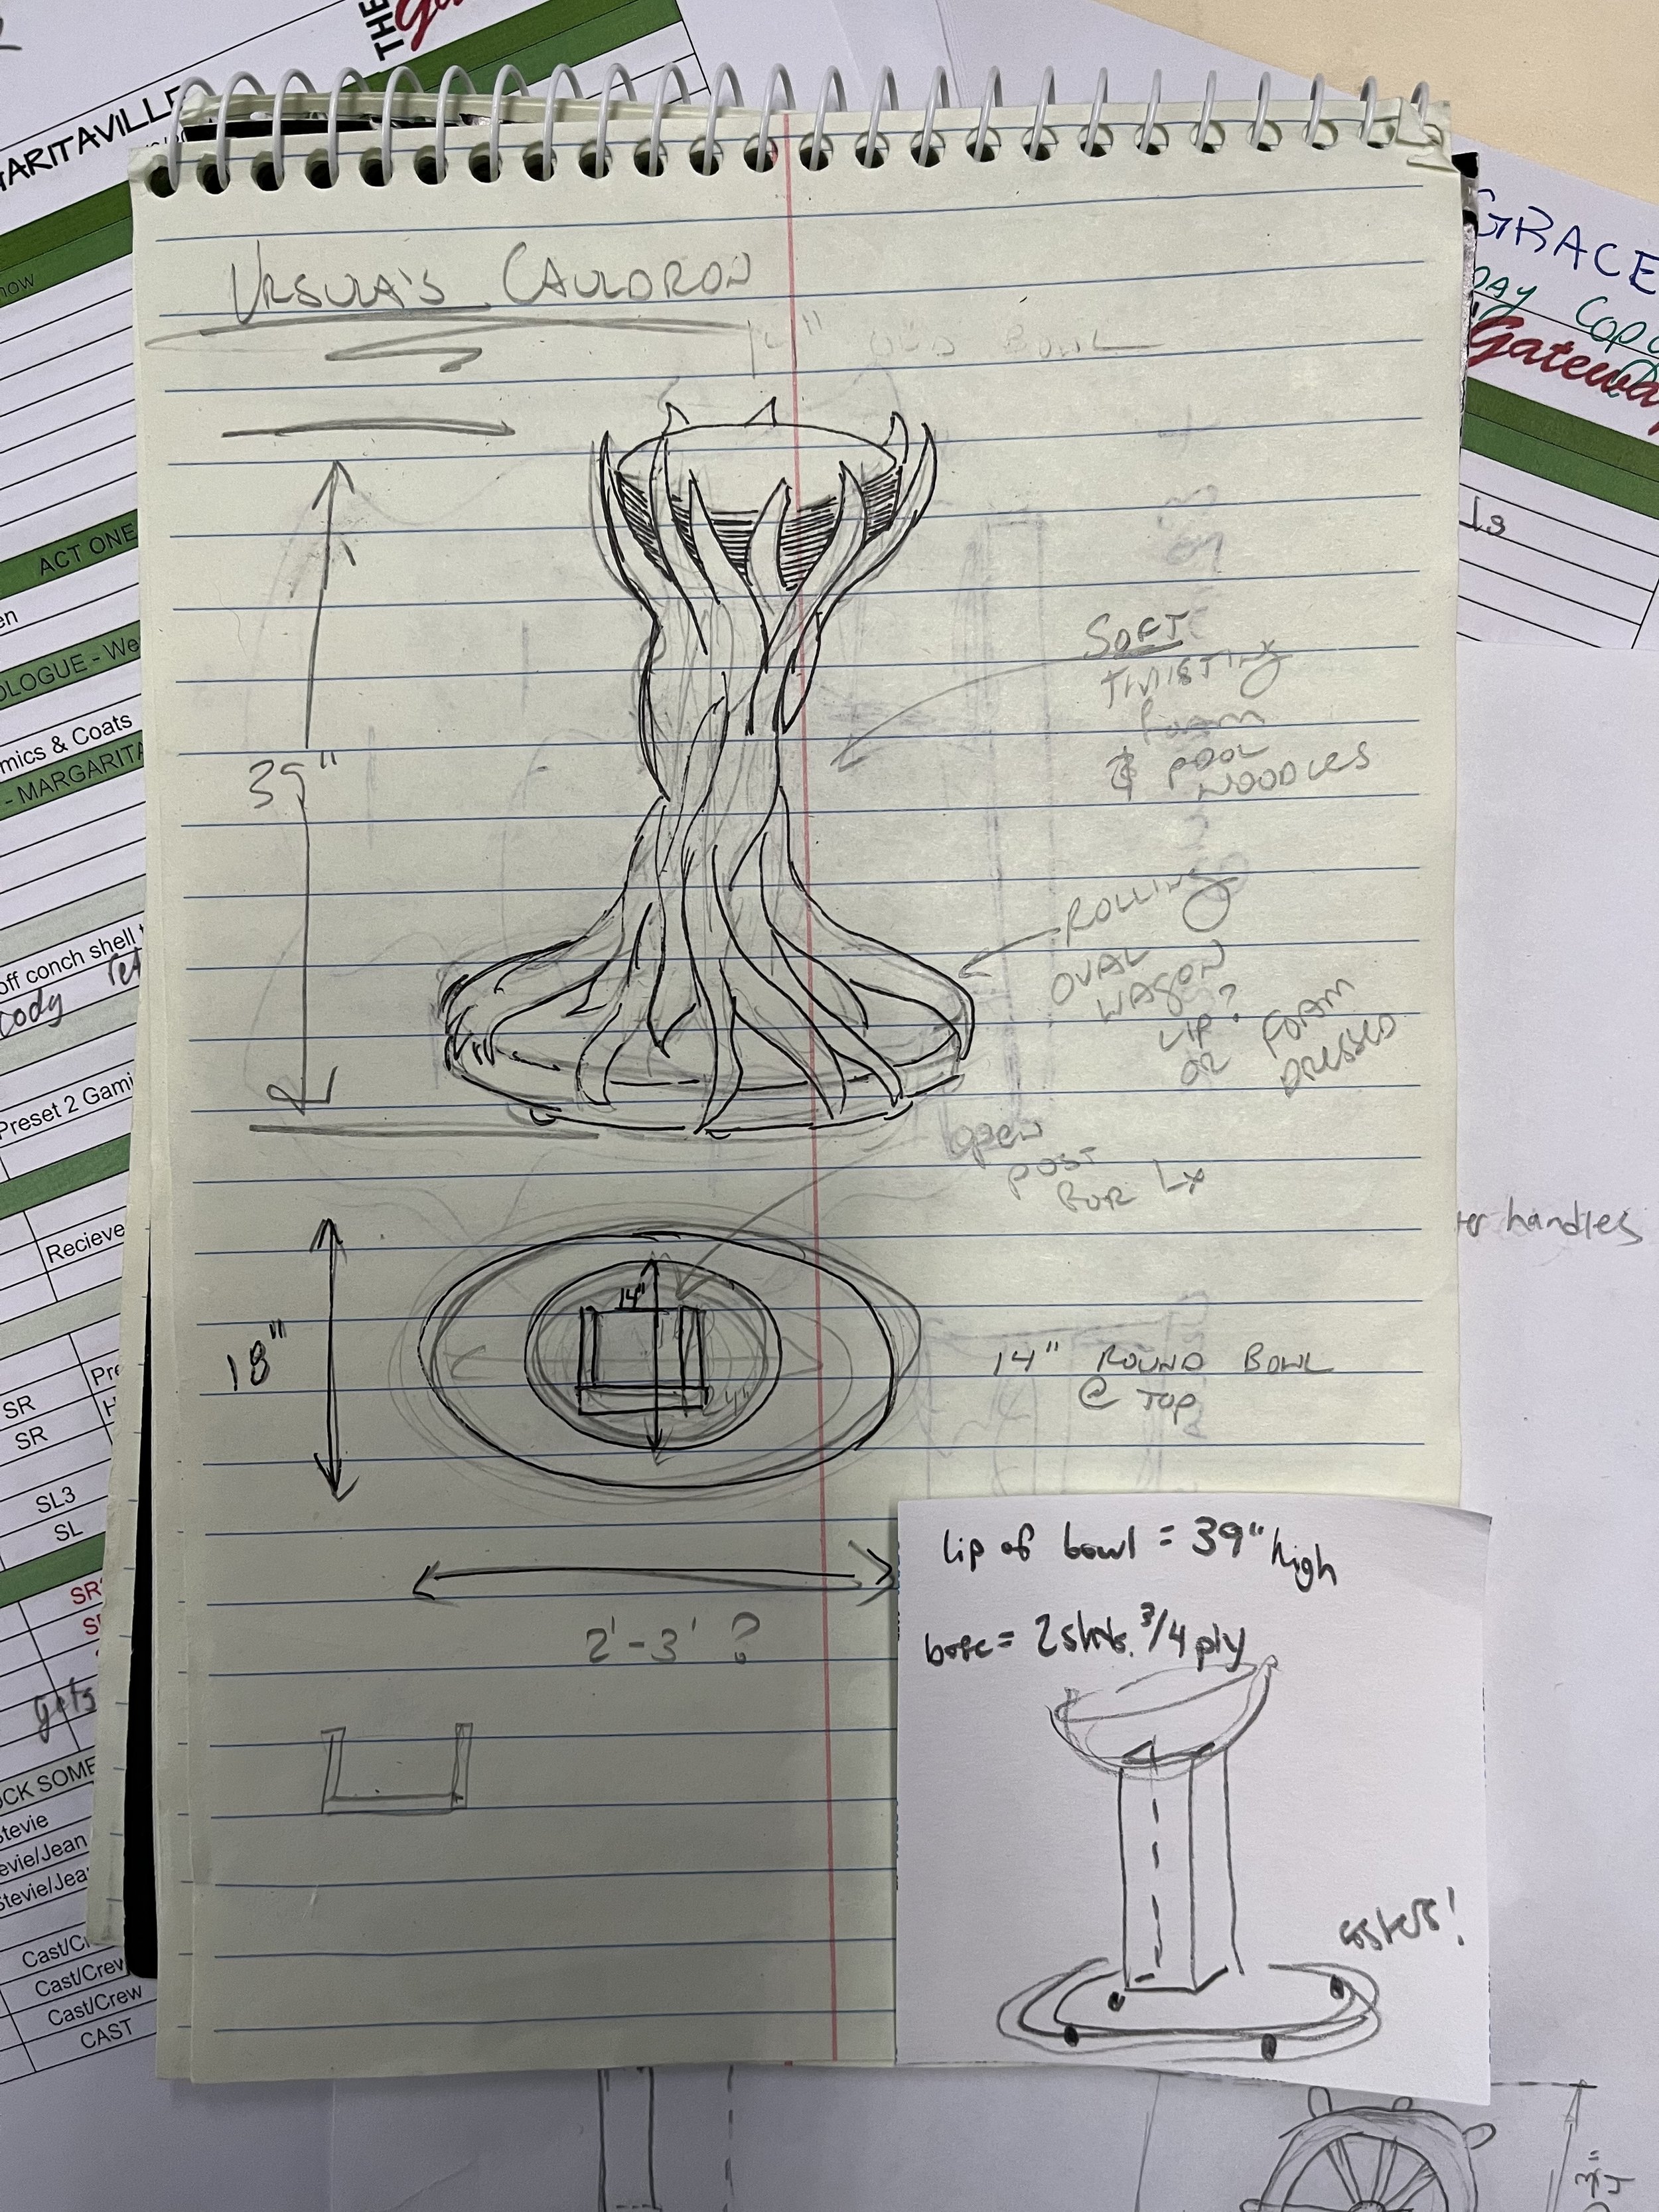 THE
ARITAVILLE
GRACE
Copy
Gateway
URSULA'S CAULDRON
14" BOWL
ACT ONE
39"
SOFT
TWISTING
FOAM
& POOL
NOODLES
mics & Coats
- MARGARITA
off conch shell
ROLLING
OVAL
WAGON
LIP?
OR FOAM
DRESSED
Preset 2 Gami
OPEN
POST
FOR LX
er handles
Recieve
14"
18"
14" ROUND BOWL
@ TOP
4"
SR
SR
SL3
SL
2'-3' ?
lip of bowl = 39" high
base = 2 shts. 3/4 ply
casters!
gets
OCK SOME
Stevie
evie/Jean
Stevie/Jea
Cast/Cr
Cast/Crew
Cast/Crew
CAST